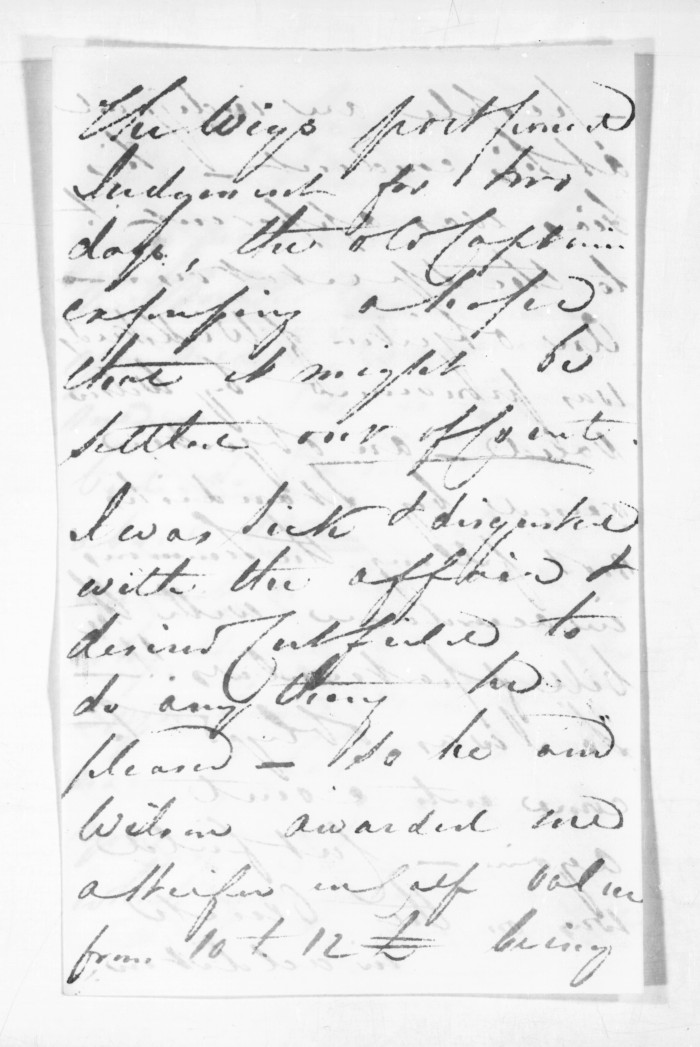 The Wigs postponed
Judgment for two
days, the old Captain
expressing a hope
that it might be
settled out of Court.
I was sick & disgusted
with the affair &
desired Cutfield to
do any thing he
pleased – so he and
Wilson awarded me
a Heifer in calf value
from 10 to 12 £ being